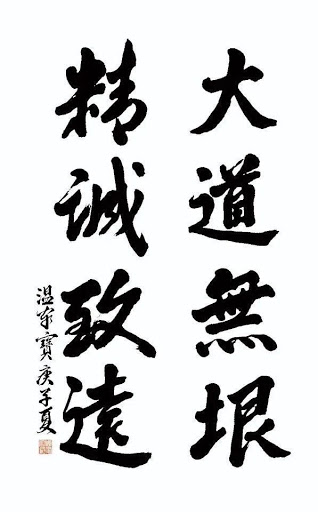 大道無垠
精誠致遠
温家寶庚子夏